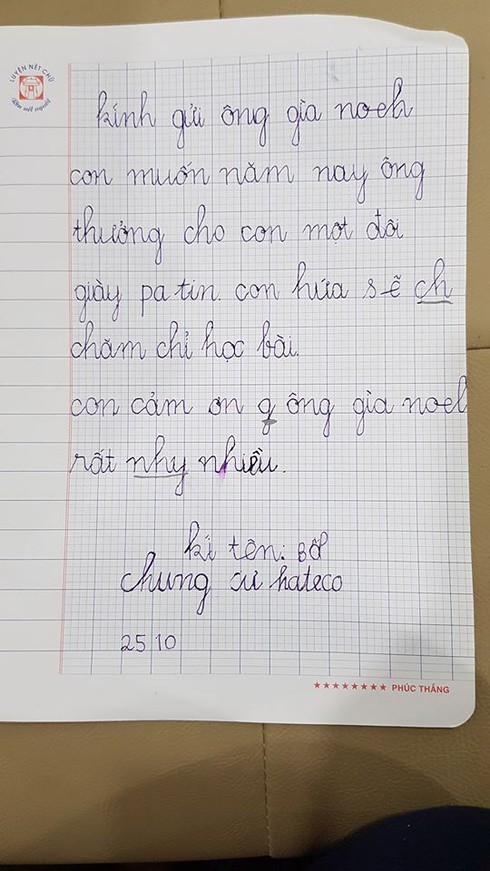 LUYỆN NÉT CHỮ
Rèn nết người
kính gửi ông già noel
con muốn năm nay ông
thưởng cho con một đôi
giày pa tin. con hứa sẽ ch
chăm chỉ học bài.
con cảm ơn g ông già noel
rất nhy nhiều.
kí tên: Bốp
chung cư hateco
25 10
★★★★★★★★ PHÚC THẮNG